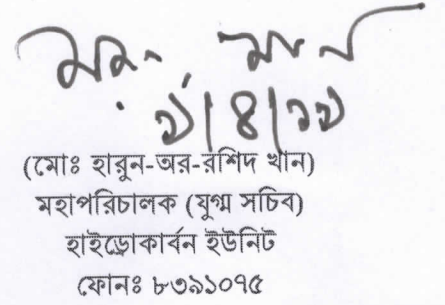 (মোঃ হারুন-অর-রশিদ খান)
মহাপরিচালক (যুগ্ম সচিব)
হাইড্রোকার্বন ইউনিট
ফোনঃ ৮৩৯১০৭৫